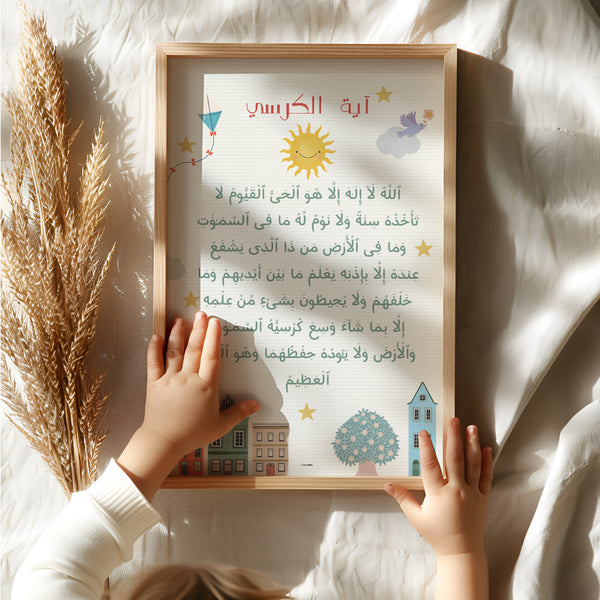 آية الكرسي
ٱللَّهُ لَآ إِلَٰهَ إِلَّا هُوَ ٱلْحَىُّ ٱلْقَيُّومُ لَا
تَأْخُذُهُۥ سِنَةٌ وَلَا نَوْمٌ لَّهُۥ مَا فِى ٱلسَّمَٰوَٰتِ
وَمَا فِى ٱلْأَرْضِ مَن ذَا ٱلَّذِى يَشْفَعُ
عِندَهُۥٓ إِلَّا بِإِذْنِهِۦ يَعْلَمُ مَا بَيْنَ أَيْدِيهِمْ وَمَا
خَلْفَهُمْ وَلَا يُحِيطُونَ بِشَىْءٍ مِّنْ عِلْمِهِۦٓ
إِلَّا بِمَا شَآءَ وَسِعَ كُرْسِيُّهُ
وَٱلْأَرْضَ وَلَا يَـُٔودُهُۥ حِفْظُهُمَا وَهُوَ
ٱلْعَظِيمُ